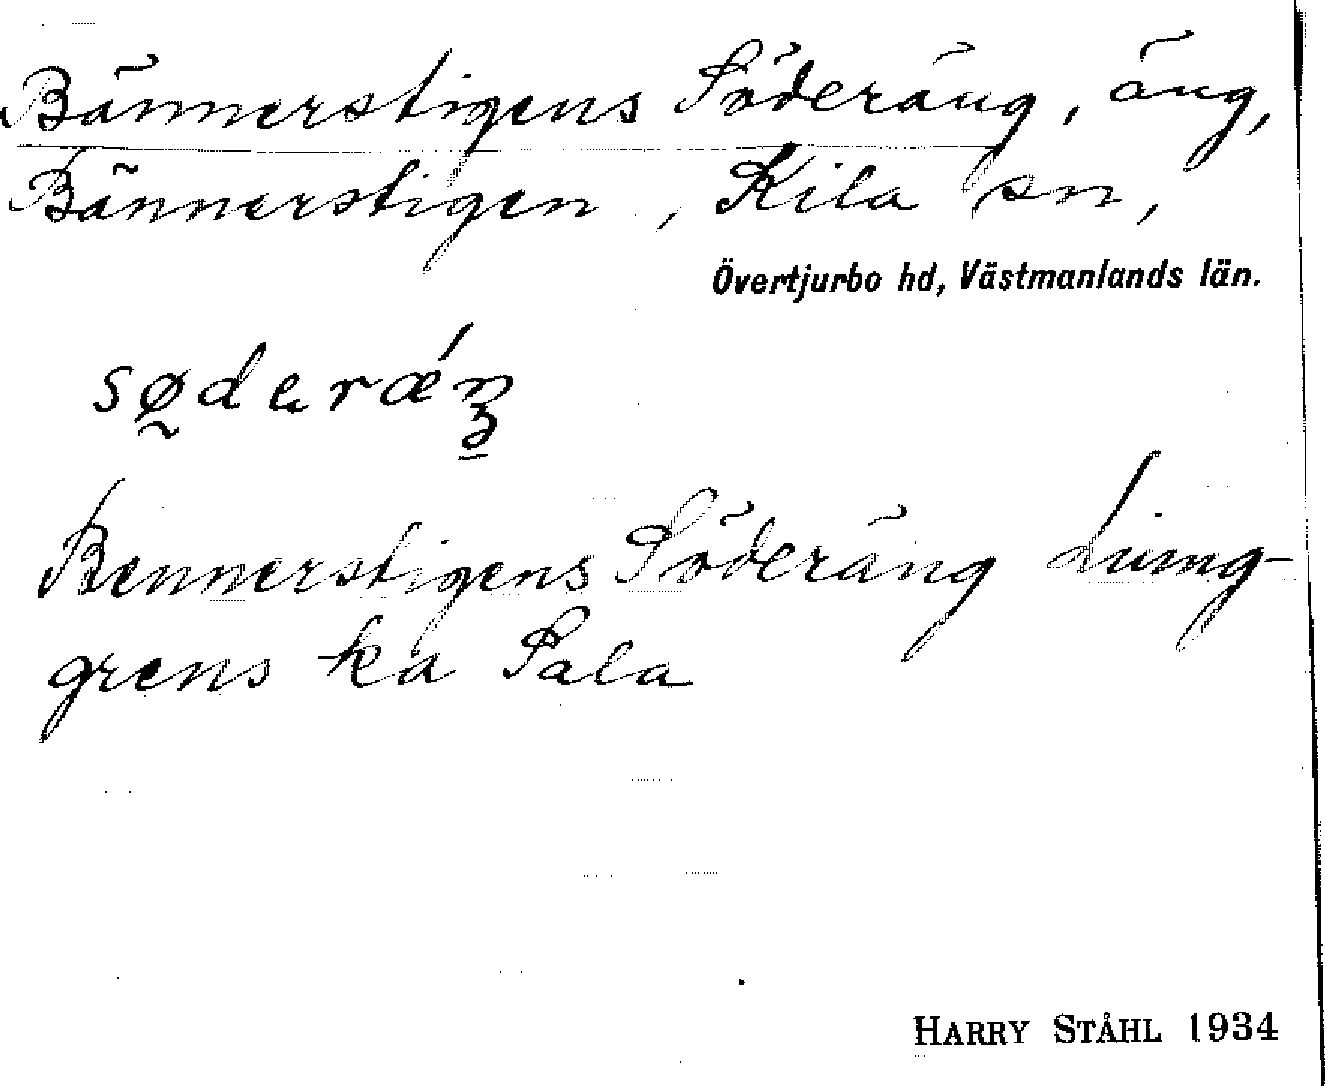 Bännerstigens Söderäng, äng,
Bännerstigen, Kila sn,
Övertjurbo hd, Västmanlands län.
Bennerstigens Söderäng Ljung-
grens ka Sala
HARRY STÅHL 1934